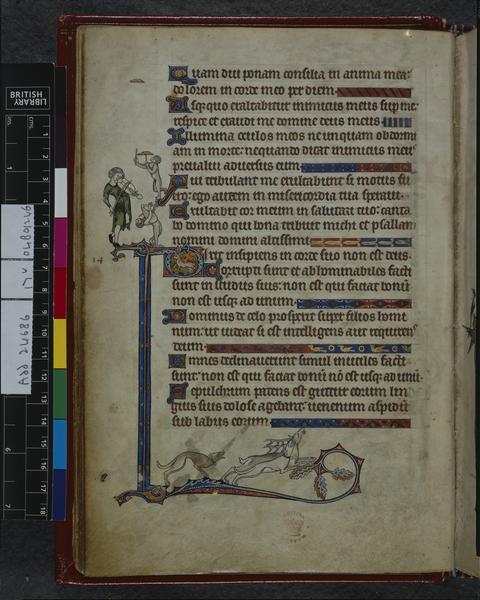 Quam diu ponam consilia in anima mea:
dolorem in corde meo per diem.
Usq; quo exaltabitur inimicus meus sup me:
respice et exaudi me domine deus meus
Illumina oculos meos ne unquam obdormi
am in morte: nequando dicat inimicus meus
prevalui adversus eum.
Qui tribulant me exultabunt si motus fu
ero: ego autem in misericordia tua speravi.
Exultabit cor meum in salutari tuo: canta
bo domino qui bona tribuit michi et psallam
nomini domini altissimi
Dixit insipiens in corde suo non est deus.
Corrupti sunt et abhominabiles facti
sunt in studiis suis: non est qui faciat bonū
non est usq; ad unum.
Dominus de celo prospexit super filios homi
num: ut videat si est intelligens aut requirens
deum.
Omnes declinaverunt simul inutiles facti
sunt: non est qui faciat bonū nō est usq; ad unū.
Sepulchrum patens est guttur eorum lin
guis suis dolose agebant: venenum aspidū
sub labiis eorum
14
BRITISH
LIBRARY
cms
1
2
3
4
5
6
7
8
9
10
11
12
13
14
15
16
17
18
ins
1
6
7
Add 24686